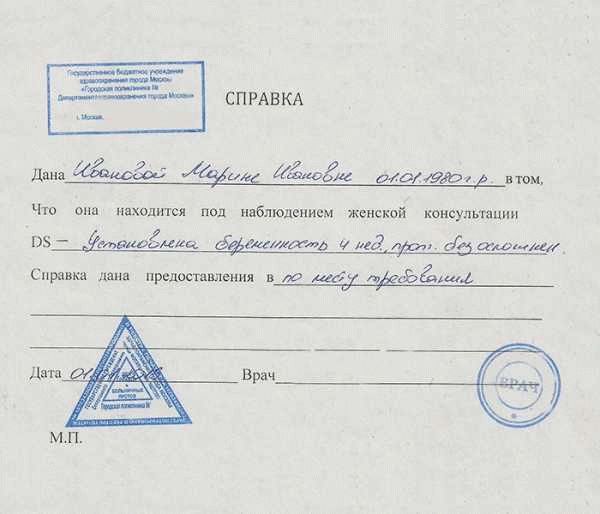 Государственное бюджетное учреждение
здравоохранения города Москвы
«Городская поликлиника №
Департамента здравоохранения города Москвы»
г. Москва,
СПРАВКА
Дана Ивановой Марине Ивановне 01.01.1980 г.р. в том,
Что она находится под наблюдением женской консультации
DS – Установлена беременность 4 нед., прот. без осложнен.
Справка дана предоставления в по месту требования
Дата 01. Врач
БОЛЬНИЧНЫХ
ЛИСТОВ
Городская поликлиника №
ВРАЧ
М.П.